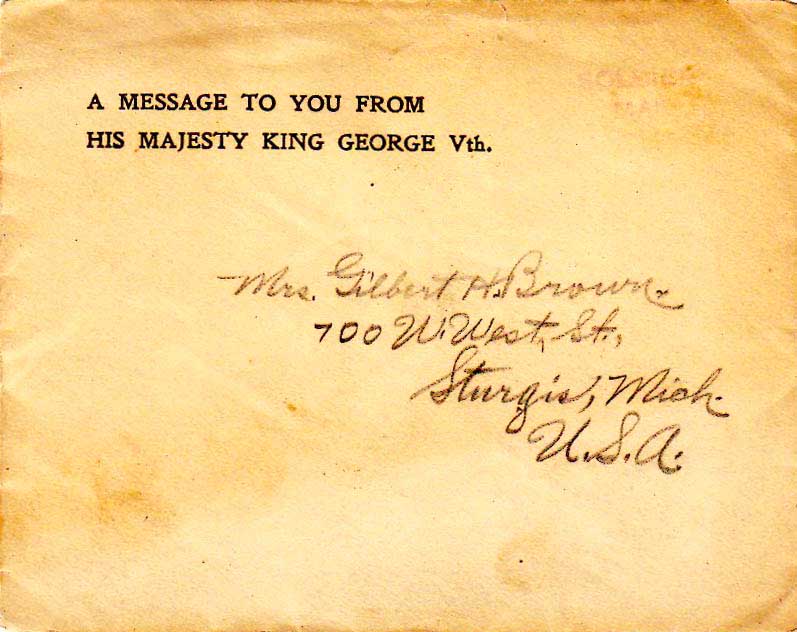 A MESSAGE TO YOU FROM
HIS MAJESTY KING GEORGE Vth.
Mrs. Gilbert H. Brown.
700 W. West, St.,
Sturgis, Mich.
U.S.A.